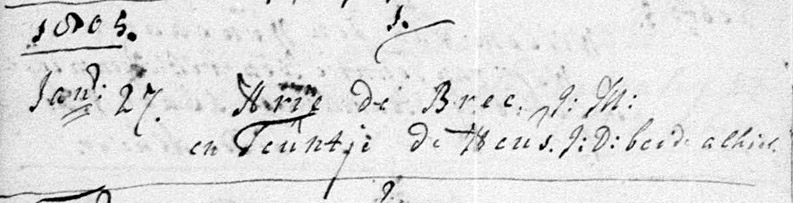 1805. 1.
Jan: 27. Arie de Bree. J: M:
en Teuntje de Heus. J: D: beide alhier.
2.